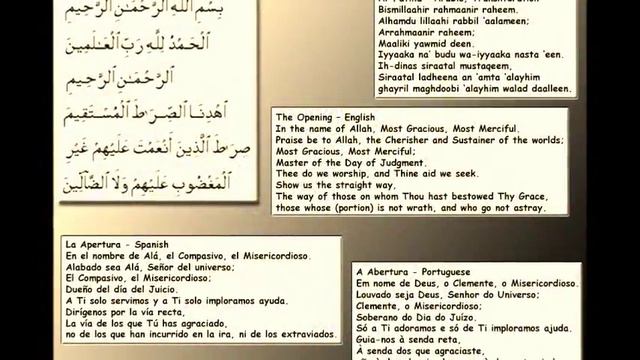 بِسْمِ ٱللَّهِ ٱلرَّحْمَـٰنِ ٱلرَّحِيمِ
ٱلْحَمْدُ لِلَّهِ رَبِّ ٱلْعَـٰلَمِينَ
ٱلرَّحْمَـٰنِ ٱلرَّحِيمِ
ٱهْدِنَا ٱلصِّرَٰطَ ٱلْمُسْتَقِيمَ
صِرَٰطَ ٱلَّذِينَ أَنْعَمْتَ عَلَيْهِمْ غَيْرِ
ٱلْمَغْضُوبِ عَلَيْهِمْ وَلَا ٱلضَّآلِّينَ
Bismillaahir rahmaanir raheem.
Alhamdu lillaahi rabbil 'aalameen;
Arrahmaanir raheem;
Maaliki yawmid deen.
Iyyaaka na' budu wa-iyyaaka nasta 'een.
Ih-dinas siraatal mustaqeem,
Siraatal ladheena an 'amta 'alayhim
ghayril maghdoobi 'alayhim walad daalleen.
The Opening – English
In the name of Allah, Most Gracious, Most Merciful.
Praise be to Allah, the Cherisher and Sustainer of the worlds;
Most Gracious, Most Merciful;
Master of the Day of Judgment.
Thee do we worship, and Thine aid we seek.
Show us the straight way,
The way of those on whom Thou hast bestowed Thy Grace,
those whose (portion) is not wrath, and who go not astray.
La Apertura - Spanish
En el nombre de Alá, el Compasivo, el Misericordioso.
Alabado sea Alá, Señor del universo;
El Compasivo, el Misericordioso;
Dueño del día del Juicio.
A Ti solo servimos y a Ti solo imploramos ayuda.
Dirígenos por la vía recta,
La vía de los que Tú has agraciado,
no de los que han incurrido en la ira, ni de los extraviados.
A Abertura - Portuguese
Em nome de Deus, o Clemente, o Misericordioso.
Louvado seja Deus, Senhor do Universo;
Clemente, o Misericordioso;
Soberano do Dia do Juízo.
Só a Ti adoramos e só de Ti imploramos ajuda.
Guia-nos à senda reta,
À senda dos que agraciaste,